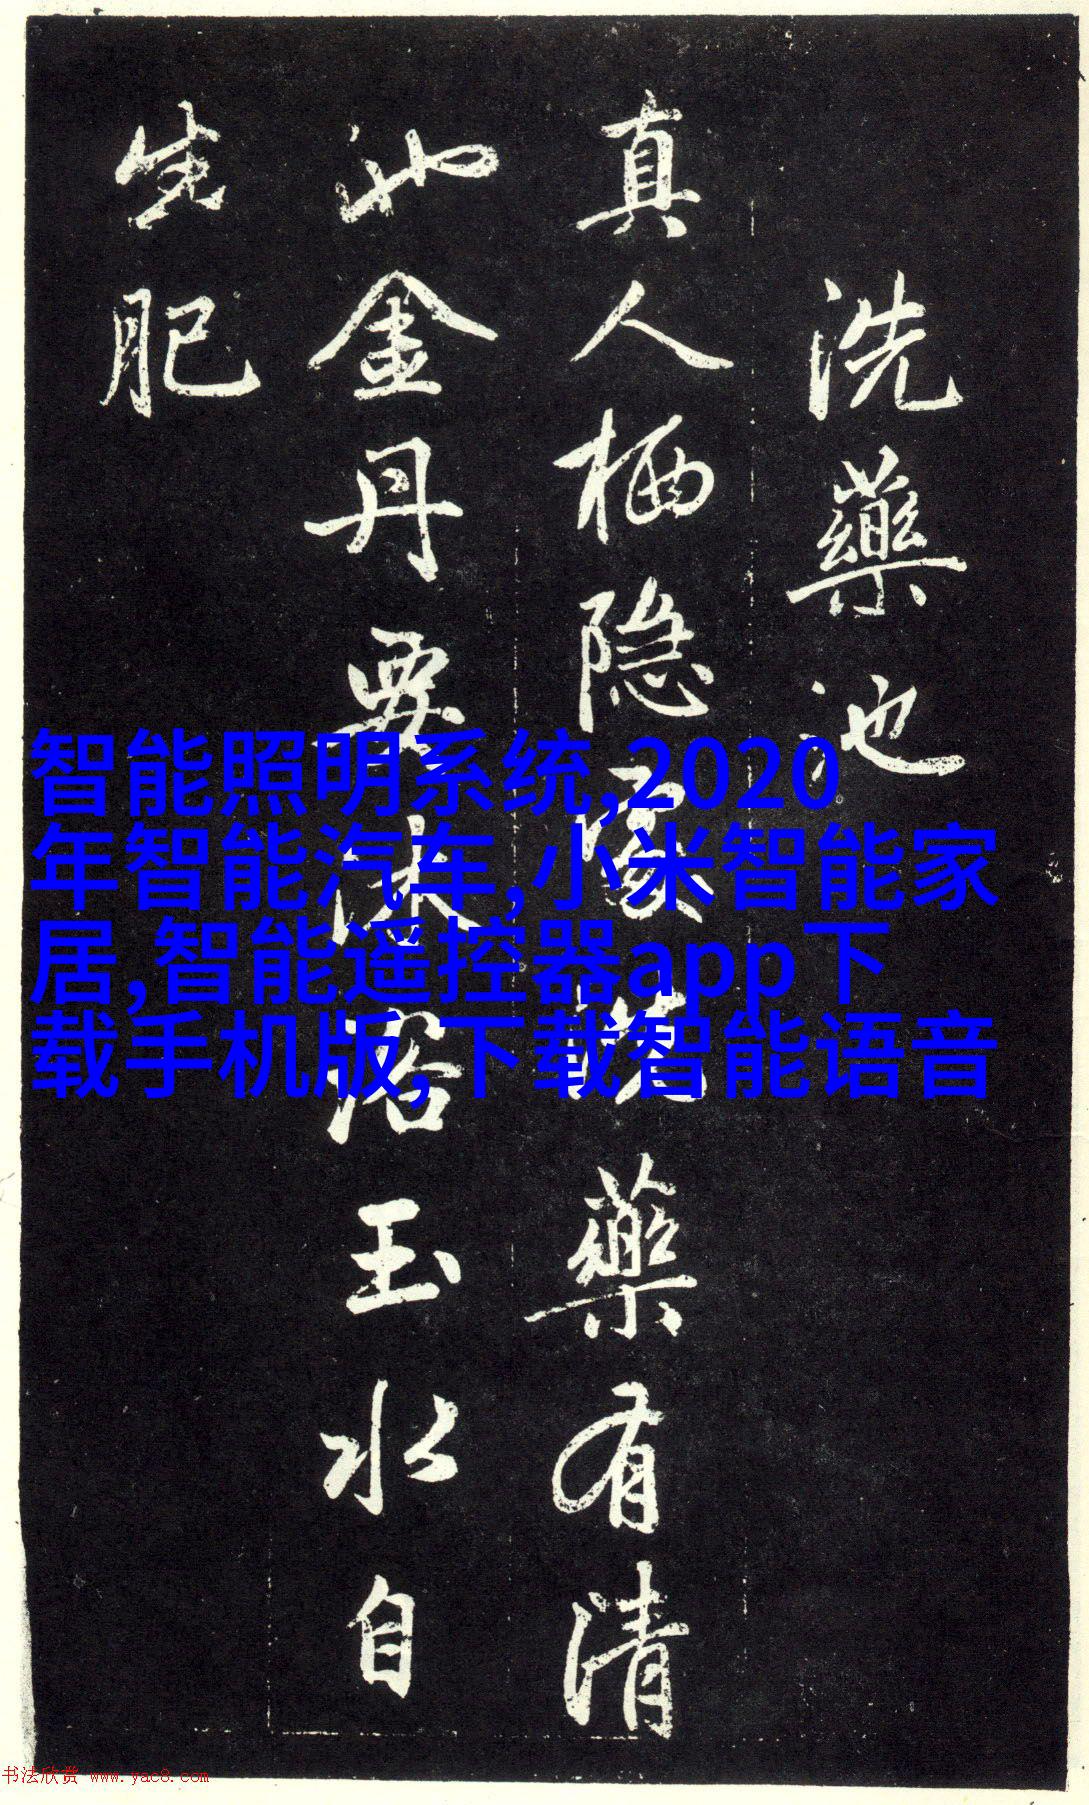 洗藥池
真人栖隐處洗藥有清
池金丹要沐浴玉水自
生肥
智能照明系统,2020
年智能汽车,小米智能家
居,智能遥控器app下
载手机版,下载智能语音
书法欣赏 www.yac8.com